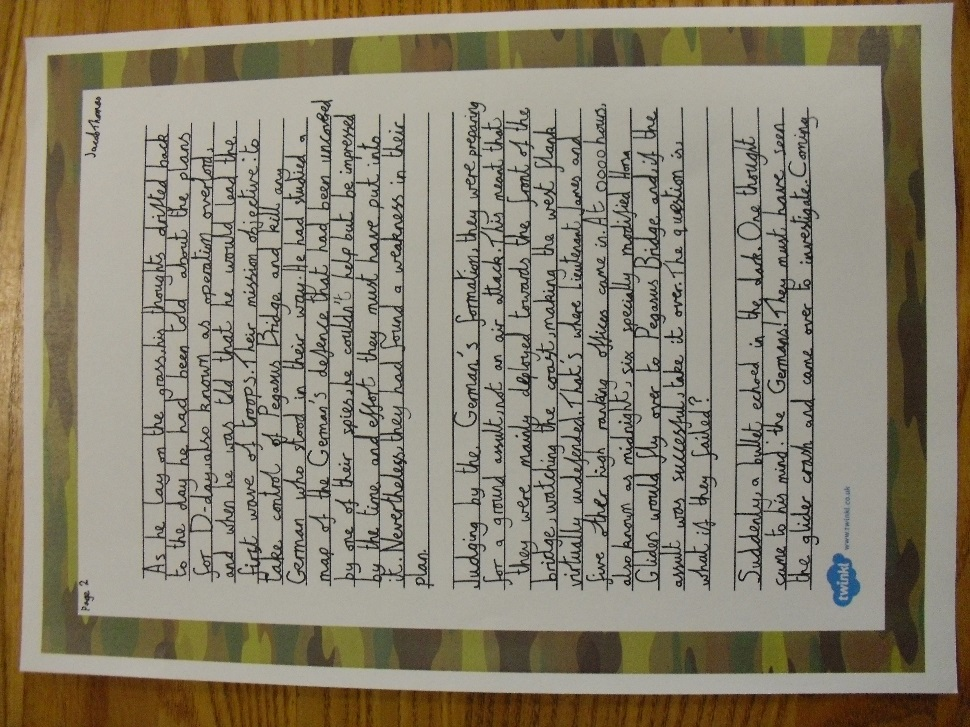 Page 2
Jacob Thomas
As he lay on the grass, his thoughts drifted back
to the day he had been told about the plans
for D-day, also known as operation overlord,
and when he was told that he would lead the
first wave of troops. Their mission objective: to
take control of Pegasus Bridge and kill any
German who stood in their way. He had studied a
map of the German's defence that had been uncovered
by one of their spies, he couldn't help but be impressed
by the time and effort they must have put into
it. Nevertheless, they had found a weakness in their
plan.
Judging by the German's formation, they were preparing
for a ground assult, not an air attack. This meant that
they were mainly deployed towards the front of the
bridge, watching the coast, making the west flank
virtually undefended. That's where lieutenant James and
five other high ranking offices came in. At 0000 hours,
also known as midnight, six specially modified Horsa
Gliders would fly over to Pegasus Bridge and, if the
assult was successful, take it over. The question is,
what if they failed?
Suddenly, a bullet echoed in the dark. One thought
came to his mind: the Germans! They must have seen
the glider crash and came over to investigate. Coming
twinkl
www.twinkl.co.uk